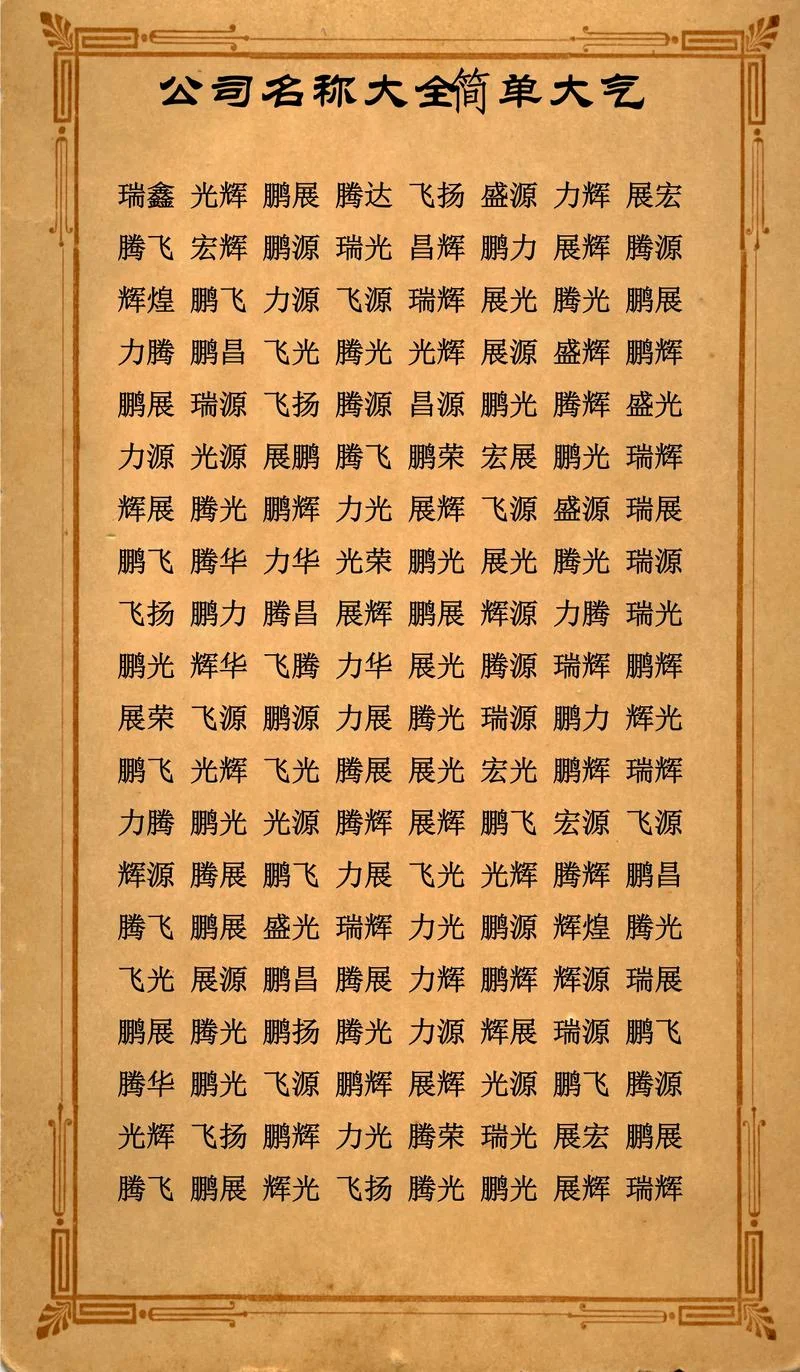 公司名称大全简单大气
瑞鑫 光辉 鹏展 腾达 飞扬 盛源 力辉 展宏
腾飞 宏辉 鹏源 瑞光 昌辉 鹏力 展辉 腾源
辉煌 鹏飞 力源 飞源 瑞辉 展光 腾光 鹏展
力腾 鹏昌 飞光 腾光 光辉 展源 盛辉 鹏辉
鹏展 瑞源 飞扬 腾源 昌源 鹏光 腾辉 盛光
力源 光源 展鹏 腾飞 鹏荣 宏展 鹏光 瑞辉
辉展 腾光 鹏辉 力光 展辉 飞源 盛源 瑞展
鹏飞 腾华 力华 光荣 鹏光 展光 腾光 瑞源
飞扬 鹏力 腾昌 展辉 鹏展 辉源 力腾 瑞光
鹏光 辉华 飞腾 力华 展光 腾源 瑞辉 鹏辉
展荣 飞源 鹏源 力展 腾光 瑞源 鹏力 辉光
鹏飞 光辉 飞光 腾展 展光 宏光 鹏辉 瑞辉
力腾 鹏光 光源 腾辉 展辉 鹏飞 宏源 飞源
辉源 腾展 鹏飞 力展 飞光 光辉 腾辉 鹏昌
腾飞 鹏展 盛光 瑞辉 力光 鹏源 辉煌 腾光
飞光 展源 鹏昌 腾展 力辉 鹏辉 辉源 瑞展
鹏展 腾光 鹏扬 腾光 力源 辉展 瑞源 鹏飞
腾华 鹏光 飞源 鹏辉 展辉 光源 鹏飞 腾源
光辉 飞扬 鹏辉 力光 腾荣 瑞光 展宏 鹏展
腾飞 鹏展 辉光 飞扬 腾光 鹏光 展辉 瑞辉